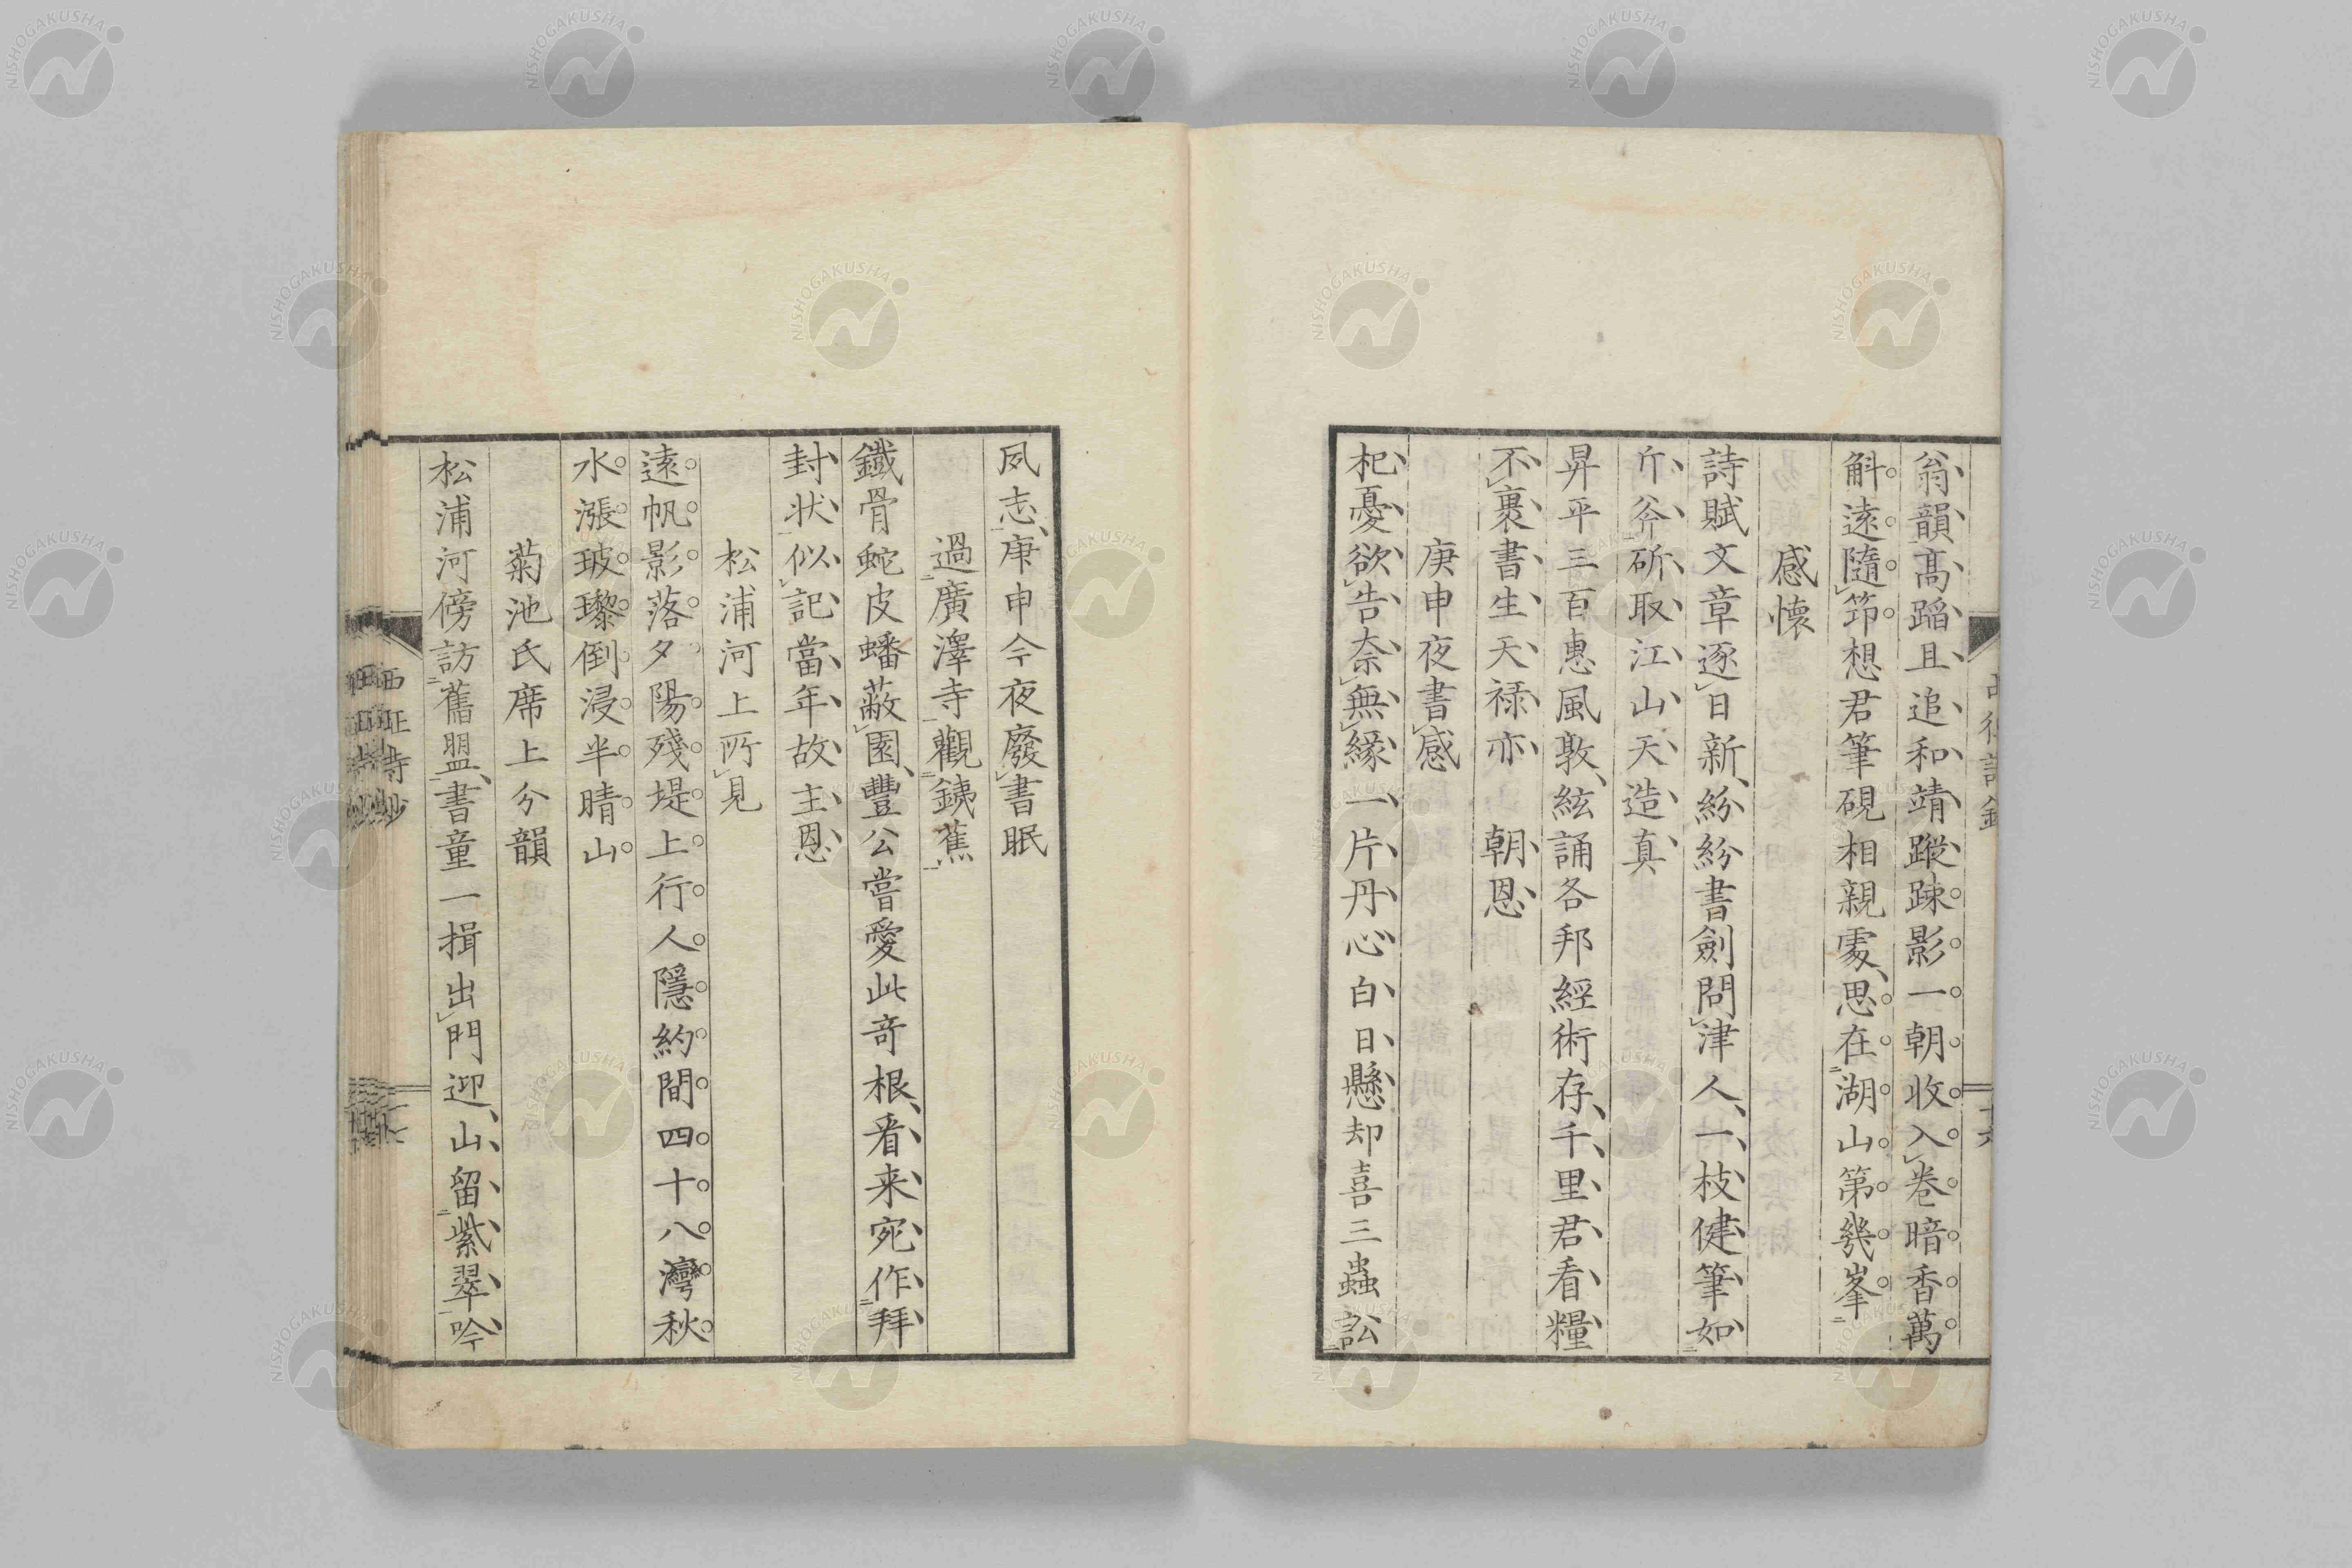 翁韻髙蹈且追和靖蹤踈影一朝收入卷暗香萬
斛遠隨笻想君筆硯相親處思在湖山第幾峯
感懷
詩賦文章逐日新紛紛書劍問津人一枝健筆如
斤斧斫取江山天造真
昇平三百惠風敦絃誦各邦經術存千里君看糧
不裹書生天祿亦 朝恩
庚申夜書感
杞憂欲告奈無緣一片丹心白日懸却喜三蟲訟
夙志庚申今夜廢書眠
過廣澤寺觀銕蕉
鐵骨蛇皮蟠蔽園豐公嘗愛此奇根看来宛作拜
封状似記當年故主恩
松浦河上所見
遠帆影落夕陽殘堤上行人隱約間四十八灣秋
水漲玻瓈倒浸半晴山
菊池氏席上分韻
松浦河傍訪舊盟書童一揖出門迎山留紫翠吟
NISHOGAKUSHA